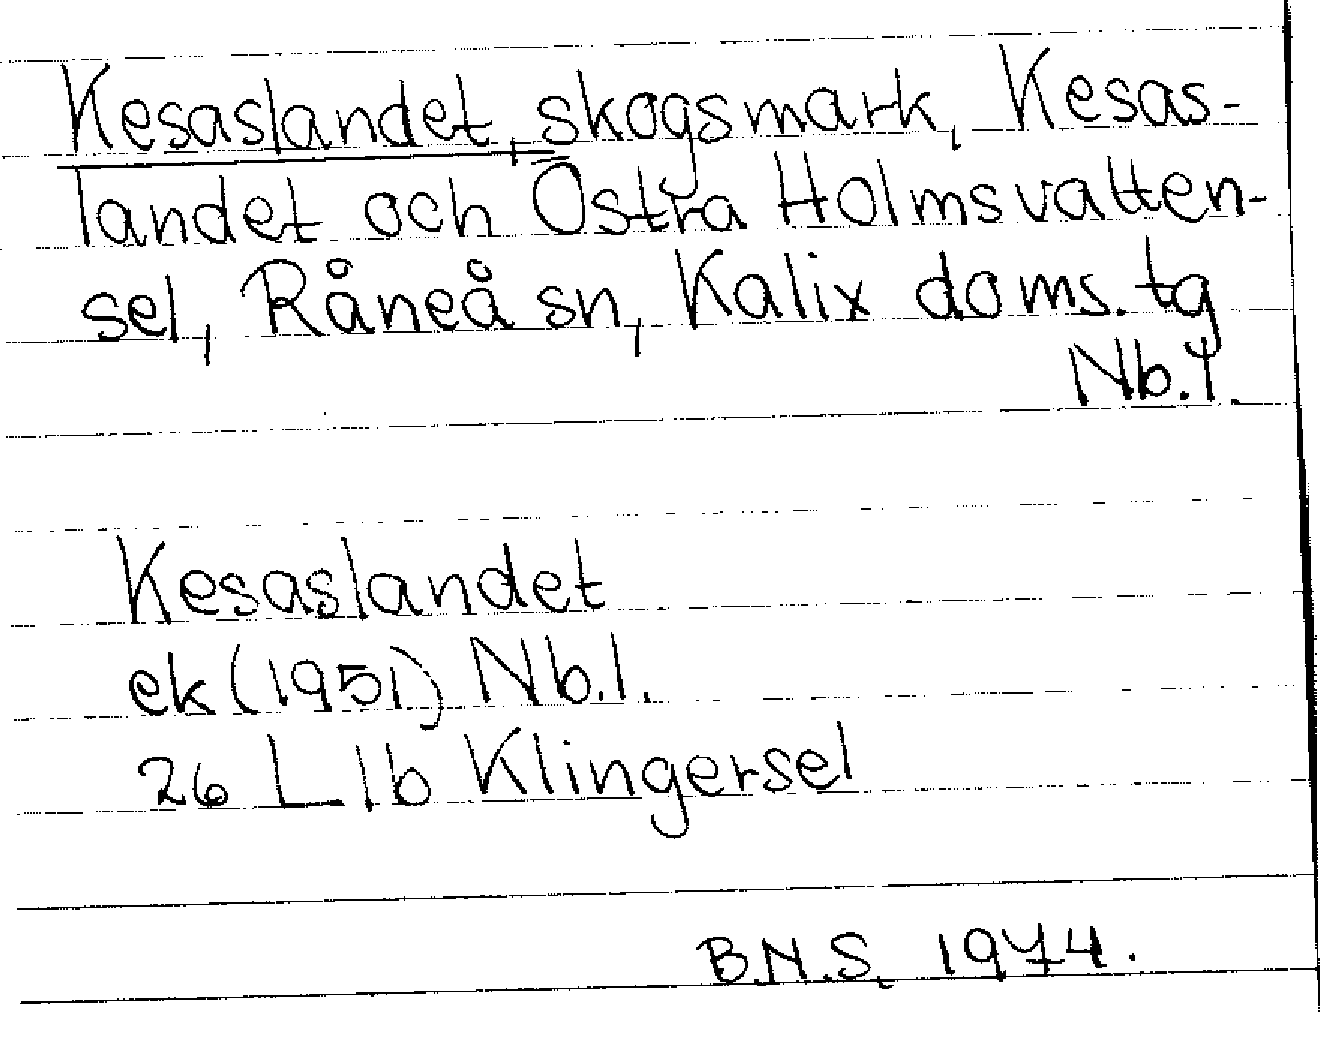 Kesaslandet, skogsmark, Kesas-
landet och Östra Holmsvatten-
sel, Råneå sn, Kalix doms. tg
Nb. l.
Kesaslandet
ek (1951) Nb. l.
26 L lb Klingersel
B.N.S. 1974.